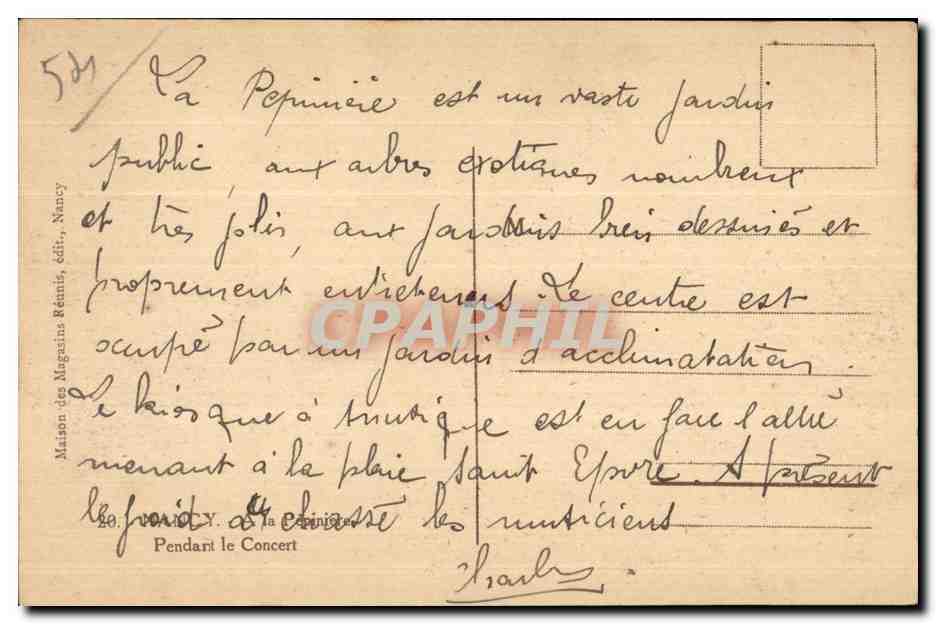 521
La Pépinière est un vaste jardin
public, aux arbres exotiques nombreux
et très jolis, aux jardins bien dessinés et
proprement entretenus. Le centre est
occupé par un jardin d'acclimatation.
Le kiosque à musique est en face l'allée
menant à la place Saint Epvre. A présent
le froid a chassé les musiciens
Charles.
20. NANCY. A la Pépinière.
Pendant le Concert
Maison des Magasins Réunis, édit., Nancy
CPAPHIL